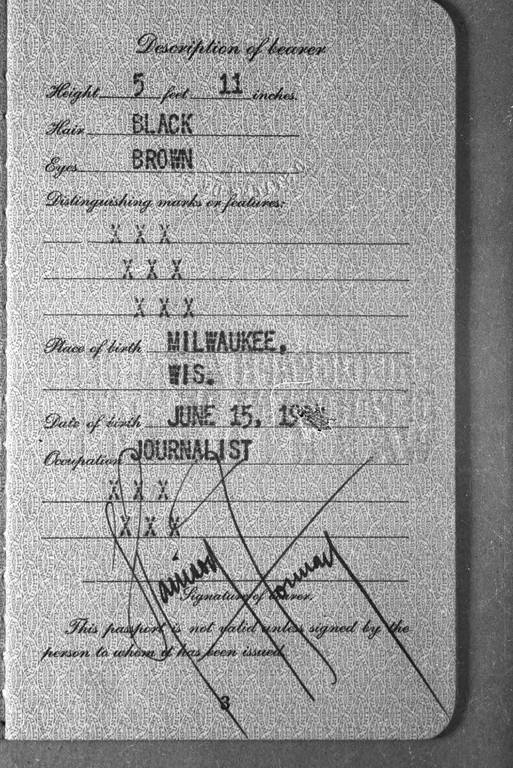 Description of bearer
Height 5 feet 11 inches.
Hair BLACK
Eyes BROWN
Distinguishing marks or features:
X X X
X X X
X X X
Place of birth MILWAUKEE,
WIS.
Date of birth JUNE 15,
Occupation JOURNALIST
X X X
X X X
Signature of bearer.
This passport is not valid unless signed by the
person to whom it has been issued.
3